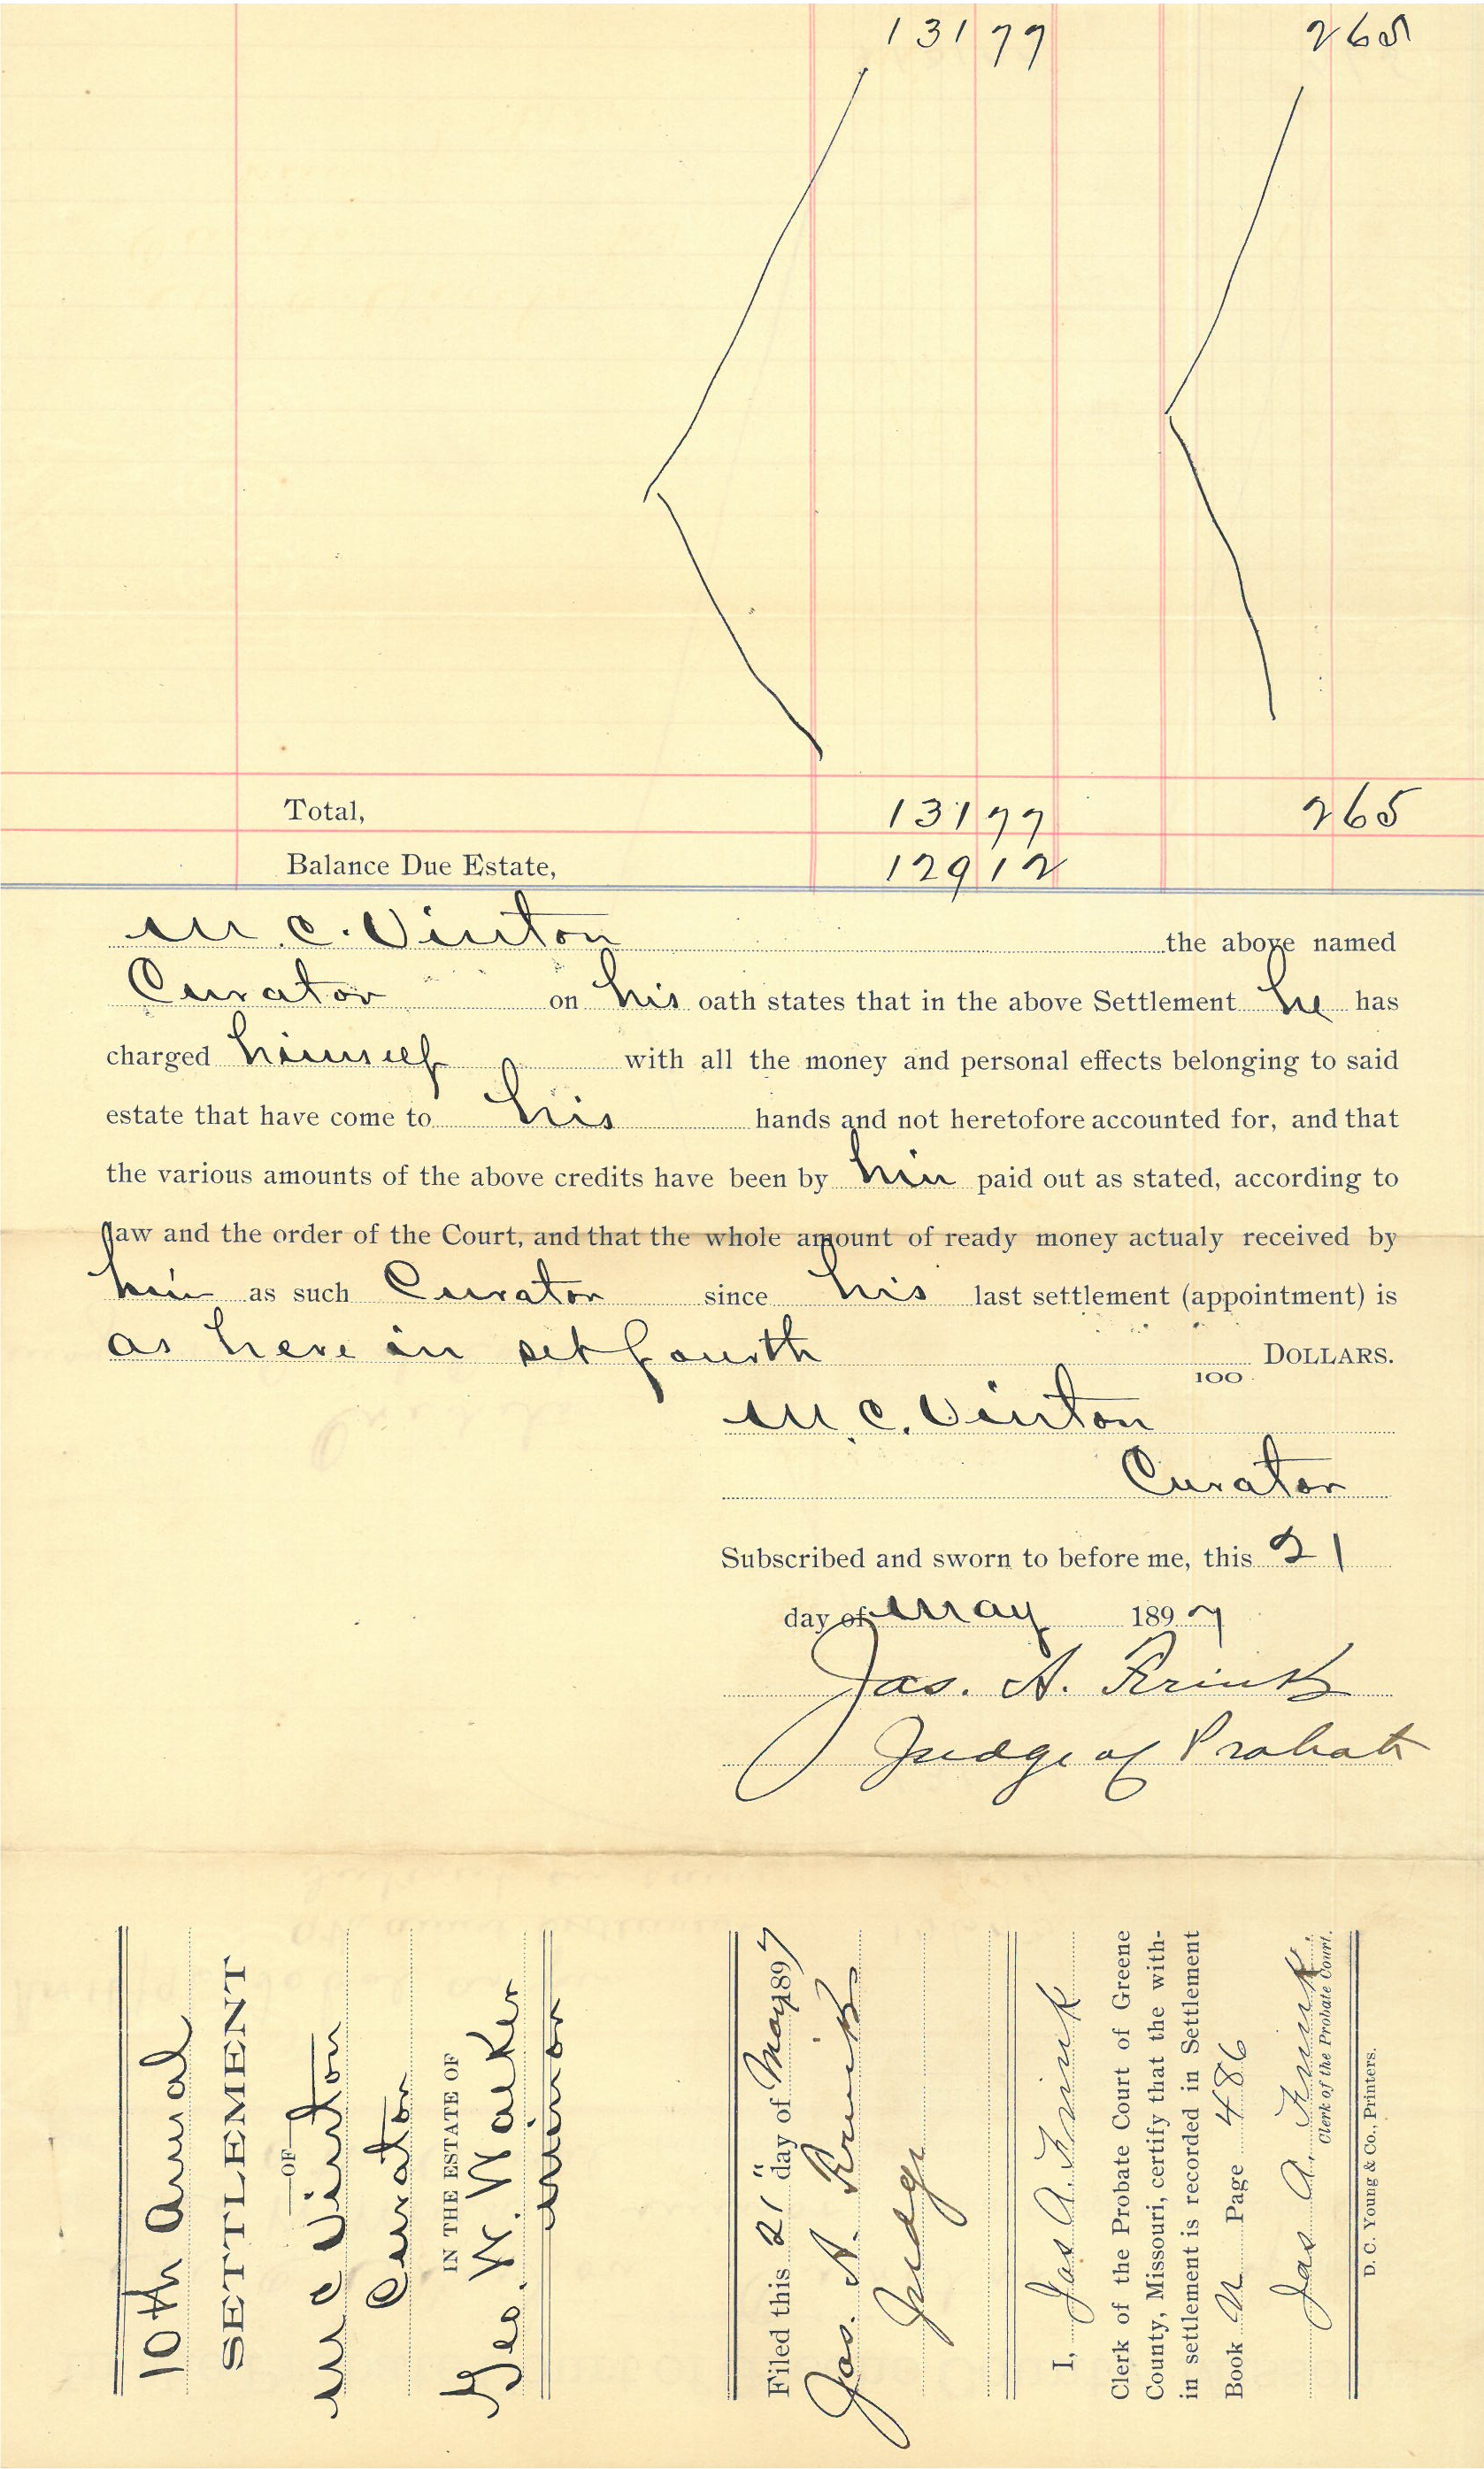 131 77 265
Total, 131 77 265
Balance Due Estate, 129 12
M. C. Vinton the above named
Curator on his oath states that in the above Settlement he has
charged himself with all the money and personal effects belonging to said
estate that have come to his hands and not heretofore accounted for, and that
the various amounts of the above credits have been by him paid out as stated, according to
law and the order of the Court, and that the whole amount of ready money actualy received by
him as such Curator since his last settlement (appointment) is
as here in set fourth 100 DOLLARS.
M. C. Vinton
Curator
Subscribed and sworn to before me, this 21
day of May 1897
Jas. A. Frink
Judge of Probate
10th Anual
SETTLEMENT
OF
M C Vinton
Curator
IN THE ESTATE OF
Geo. W. Walker
minor
Filed this 21" day of May 1897
Jas. A. Frink
Judge
I, Jas A. Frink
Clerk of the Probate Court of Greene
County, Missouri, certify that the with-
in settlement is recorded in Settlement
Book N Page 486
Jas A. Frink.
Clerk of the Probate Court.
D. C. Young & Co., Printers.